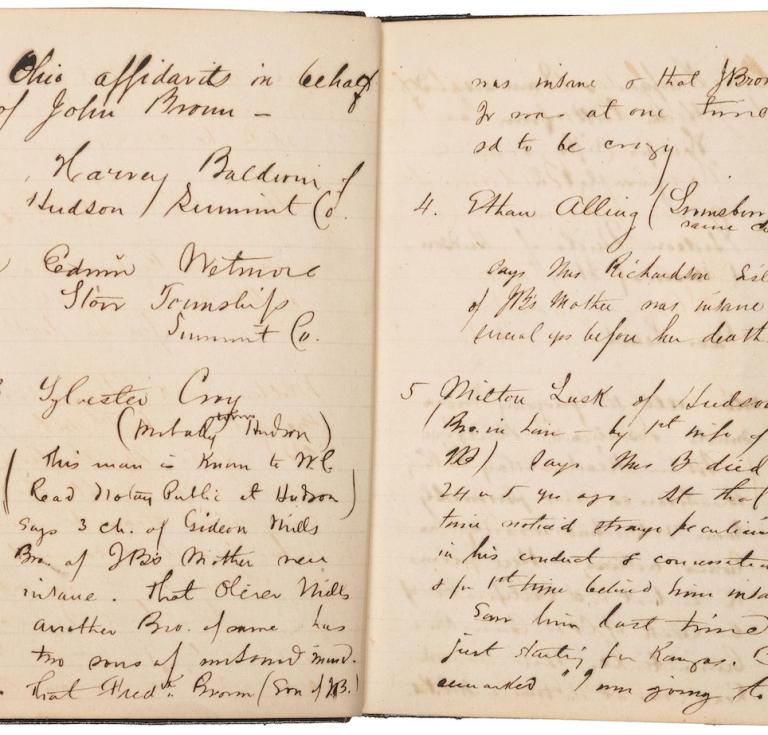 Ohio affidavits in behalf
of John Brown —
Harvey Baldwin of
Hudson Summit Co.
Edwin Wetmore
Stow Township
Summit Co.
Sylvester
(Hudson)
(This man is known to W.C.
Read Notary Public at Hudson)
Says 3 ch. of Gideon Mills
Bro. of JB's Mother were
insane. That Oliver Mills
another Bro. of same has
two sons of unsound mind.
That Fredk Brown (Son of JB.)
was insane & that JBrow
Jr was at one time
sd to be crazy
4. Ethan Alling (
same
Says Mrs Richardson Sis
of JB's Mother was insane
several yrs before her death
5 Milton Lusk of Hudson
(Bro. in law — by 1st wife of
JB) Says Mrs B died
24 or 5 yrs ago. At that
time noticed strange peculiari
in his conduct & conversation
& for 1st time believed him insa
Saw him last time
just starting for Kansas.
remarked "I am going to